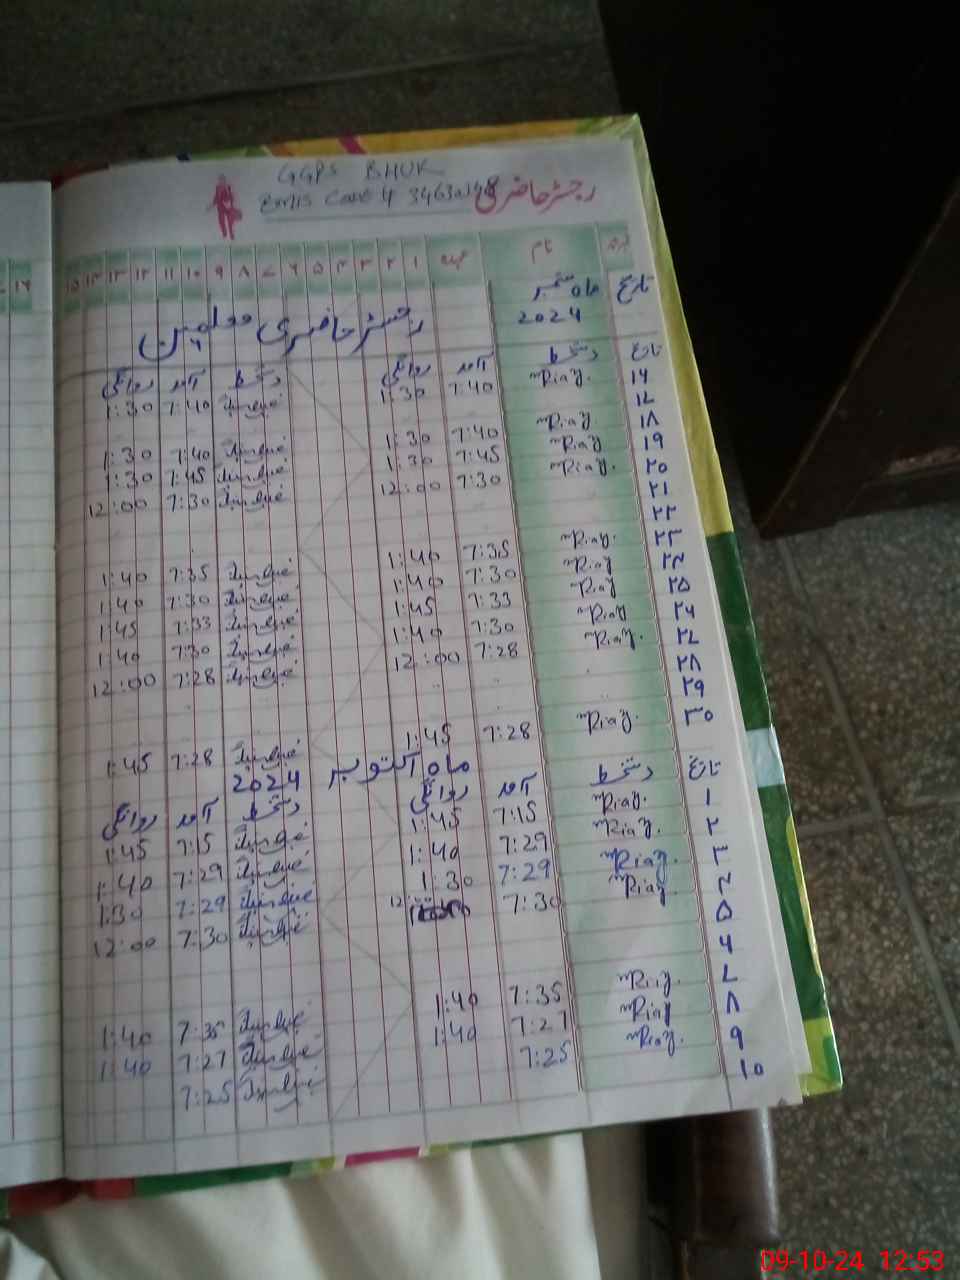 GGPS BHUK
EMIS Code # 34630148
رجسٹر حاضری
نام عہدہ ۱ ۲ ۳ ۴ ۵ ۶ ۷ ۸ ۹ ۱۰ ۱۱ ۱۲ ۱۳ ۱۴ ۱۵
۱۶
تاریخ ماہ ستمبر
2024
رجسٹر حاضری معلمین
تاریخ دستخط آمد روانگی دستخط آمد روانگی
۱۶ Riaz. 7:40 1:30 7:40 1:30
۱۷
۱۸ Riaz 7:40 1:30 7:40 1:30
۱۹ Riaz 7:45 1:30 7:45 1:30
۲۰ Riaz. 7:30 12:00 7:30 12:00
۲۱
۲۲
۲۳ Riaz. 7:35 1:40 7:35 1:40
۲۴ Riaz 7:30 1:40 7:30 1:40
۲۵ Riaz 7:33 1:45 7:33 1:45
۲۶ Riaz 7:30 1:40 7:30 1:40
۲۷ Riaz. 7:28 12:00 7:28 12:00
۲۸
۲۹
۳۰ Riaz. 7:28 1:45 7:28 1:45
ماہ اکتوبر 2024
تاریخ دستخط آمد روانگی دستخط آمد روانگی
۱ Riaz. 7:15 1:45 7:15 1:45
۲ Riaz. 7:29 1:40 7:29 1:40
۳ Riaz. 7:29 1:30 7:29 1:30
۴ Riaz. 7:30 12:00 7:30 12:00
۵
۶
۷ Riaz. 7:35 1:40 7:35 1:40
۸ Riaz 7:27 1:40 7:27 1:40
۹ Riaz. 7:25 7:25
۱۰
09-10-24 12:53